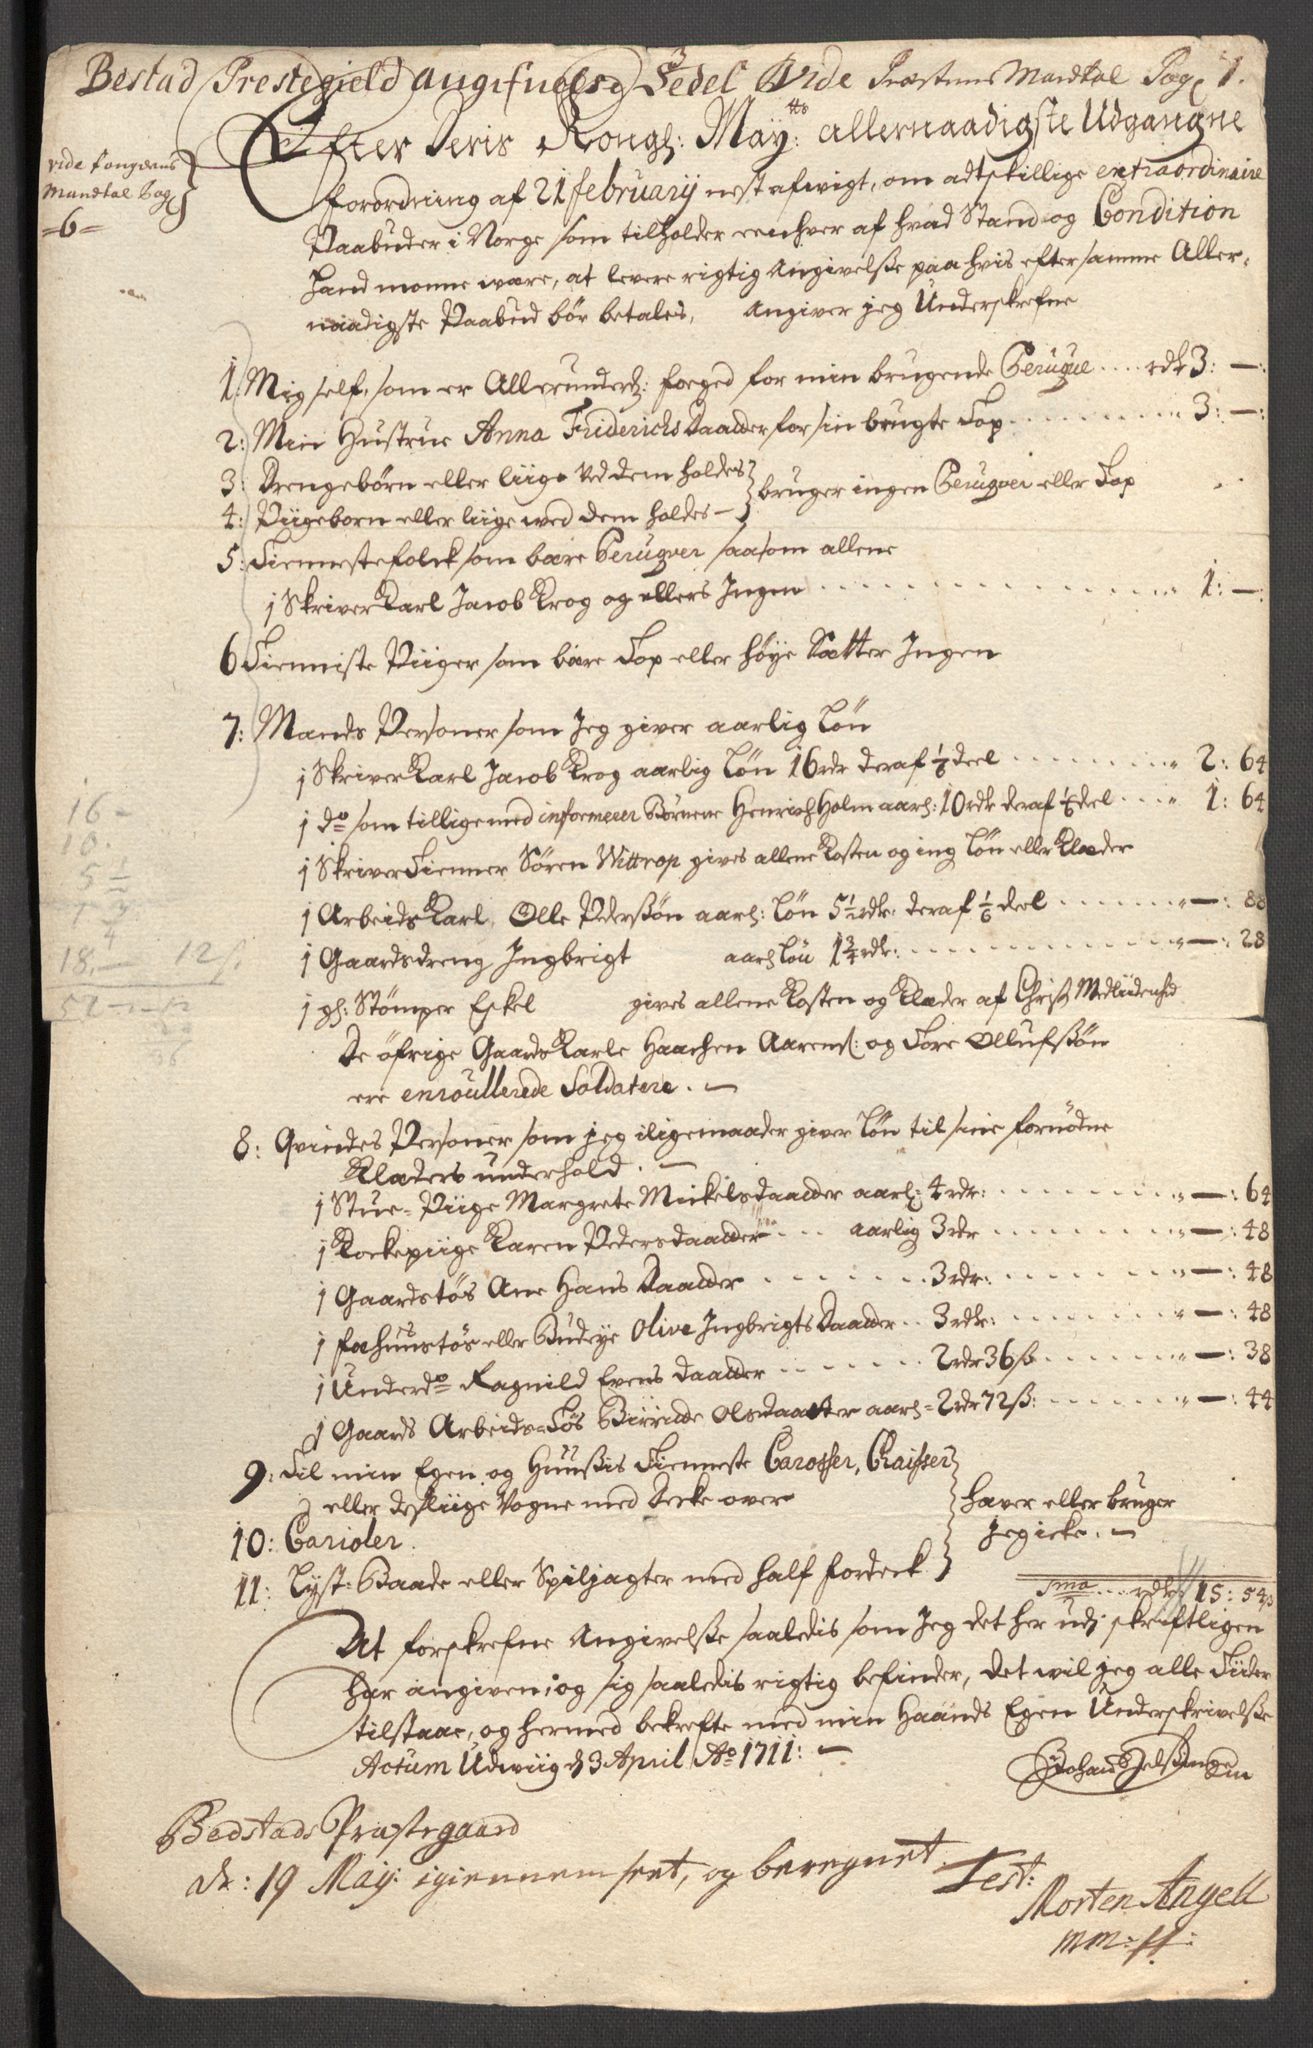 Bestad Prestegield angifuelse Sedel Vide Præstens Mandtal Pag 1.
vide fougdens
Mandtal Pag
=6=
Efter Deris Kongl: May:tts allernaadigste Udgangne
forordning af 21 february nest afwigt, om adtskillige extraordinaire
Paabuder i Norge som tilholder eenhver af hvad Stand og Condition
hand monne være, at levere rigtig Angivelsse paa hvis efter samme Aller-
naadigste Paabud bør betales, Angiver jeg Underskrefne
1: Mig self, som er Allerunderd: foged for min brugende Perüque .... rdr 3: —:
2: Min Hustrue Anna Friderichs Daatter for sin brugte Top ........ 3: —:
3: Drengebørn eller liige ved dem holdes } bruger ingen Perüqver eller Top
4: Piigeborn eller liige wed dem holdes —
5: Tiennestefolck som bære Perüqver saasom allene
1 Skriver Karl Jacob Krog og ellers Ingen ........ 1: —:
6 Tienniste Piiger som bære Top eller høye Sætter Ingen
7: Mands Personer som Jeg giver aarlig Løn
1 Skriver Karl Jacob Krog aarlig Løn 16 rdr deraf 1/6 deel ........ 2: 64
1 do som tillige med informerer Børnene Henrich Holm aarl: 10 rdr deraf 1/6 deel .... 1: 64
1 Skriver Tienner Søren Wittrop gives allene Kosten og ing Løn eller Klæder
1 Arbeids Karl Olle Pedersøn aarl: Løn 5 1/2 rdr: deraf 1/6 deel ........ —: 88
1 Gaardsdreng Ingbrigt aarl Løn 1 3/4 rdr: ........ —: 28
1 gl: Stømper Eskel gives allene Kosten og Klæder af Christ Medliidenhed
De øfrige Gaards Karle Haachen Aarens: og Tore Ollufssøn
ere enroullerede Soldatere. —
8: Qvindes Personer som jeg iligemaader giver Løn til sine fornødne
Klæders underhold. —
1 Stue-Piige Margrete Mickelsdaatter aarl: 4 rdr: ........ —: 64
1 Kockepiige Karen Pedersdaatter .... aarlig 3 rdr ........ —: 48
1 Gaardstøs Ane Hans Daatter ........ 3 rdr: ........ —: 48
1 fæhuustøs eller Budeye Olive Ingbrigts Daatter .. 3 rdr: ........ —: 48
1 Under do Ragnild Evens daatter ........ 2 rdr 36 ß ........ —: 38
1 Gaards Arbeids-Tøs Birritte Olsdaatter aarl= 2 rdr 72 ß: ........ —: 44
9: Til min Egen og Huussis Tienneste Carosser, Chaisser
eller desliige Vogne med Decke over } haver eller bruger
10: Carioler. Jeg icke. —
11: Lyst-Baade eller Spiljagter med half fordeck
Sma .... rdr: 15: 54 ß
At forskrefne Angivelsse saaledis som Jeg det her udj skriftligen
har angiven, og sig saaledis rigtig befinder, det wil jeg alle Tiider
tilstaae, og hermed bekrefte med min Haands Egen Underskrivelsse
Actum Udwiig d 3 April Ao 1711: —
Bedstads Præstegaard
de: 19 May: igiennemseet, og beregnet
Test:
Morten Angell
mm: pp:
16 —
10.
5 1/2
1 3/4
18. — 12 ß.